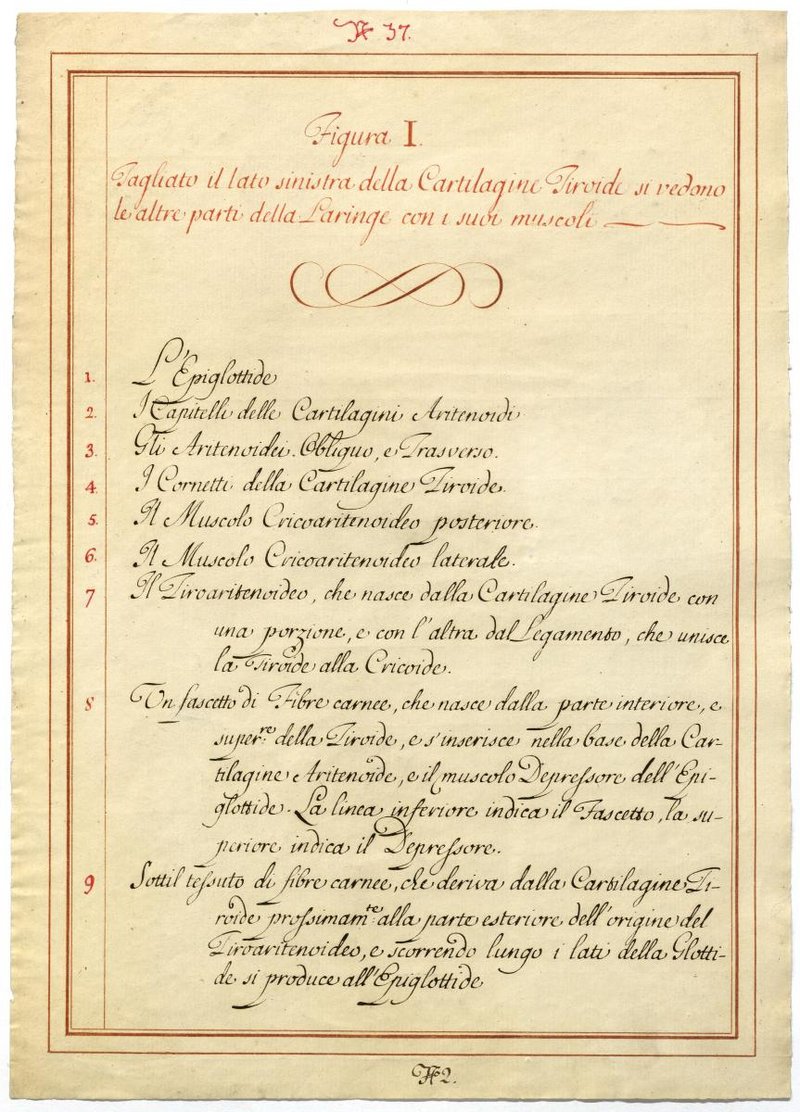 N 37.
Figura I.
Tagliato il lato sinistra della Cartilagine Tiroide si vedono
le altre parti della Laringe con i suoi muscoli
1. L'Epiglottide
2. I Capitelli delle Cartilagini Aritenoidi
3. Gli Aritenoidei Obliquo, e Trasverso.
4. I Cornetti della Cartilagine Tiroide.
5. Il Muscolo Cricoaritenoideo posteriore.
6. Il Muscolo Cricoaritenoideo laterale.
7 Il Tiroaritenoideo, che nasce dalla Cartilagine Tiroide con
una porzione, e con l'altra dal Legamento, che unisce
la Tiroide alla Cricoide.
8 Un fascetto di Fibre carnee, che nasce dalla parte interiore, e
super.re della Tiroide, e s'inserisce nella base della Car-
tilagine Aritenoide, e il muscolo Depressore dell'Epi-
glottide. La linea inferiore indica il Fascetto, la su-
periore indica il Depressore.
9 Sottil tessuto di fibre carnee, che deriva dalla Cartilagine Ti-
roide prossimam.te alla parte esteriore dell'origine del
Tiroaritenoideo, e scorrendo lungo i lati della Glotti-
de si produce all'Epiglottide
N 2.